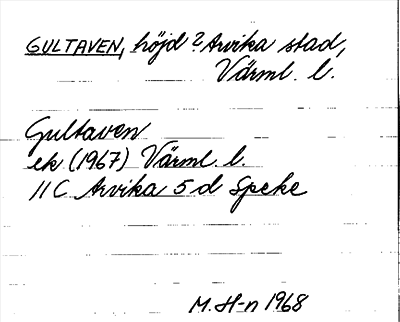 GULTAVEN, höjd? Arvika stad,
Värml. l.
Gultaven
ek (1967) Värml. l.
11 C Arvika 5 d Speke
M. H-n 1968